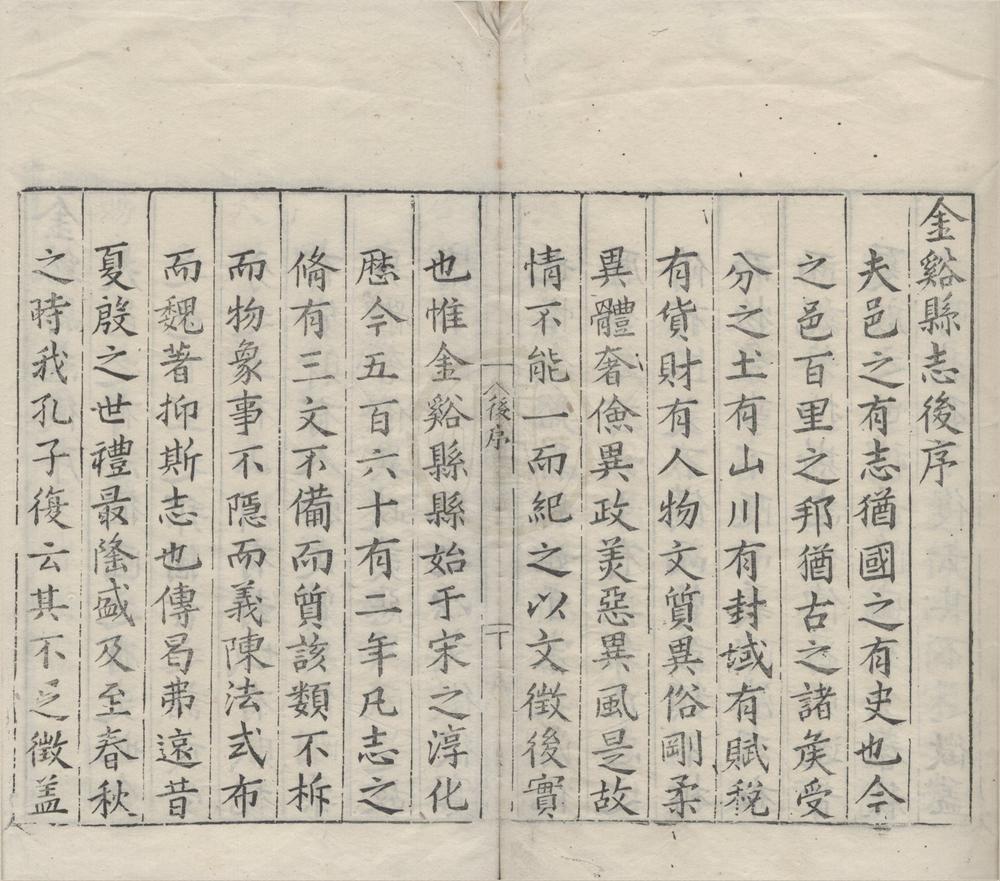 金谿縣志後序
夫邑之有志猶國之有史也今
之邑百里之邦猶古之諸矦受
分之土有山川有封域有賦稅
有貨財有人物文質異俗剛柔
異體奢儉異政美惡異風是故
情不能一而紀之以文徵後實
後序
一
也惟金谿縣縣始于宋之淳化
歷今五百六十有二年凡志之
脩有三文不備而質該類不析
而物象事不隱而義陳法式布
而魏著抑斯志也傳曷弗遠昔
夏殷之世禮最隆盛及至春秋
之時我孔子復云其不足徵盖